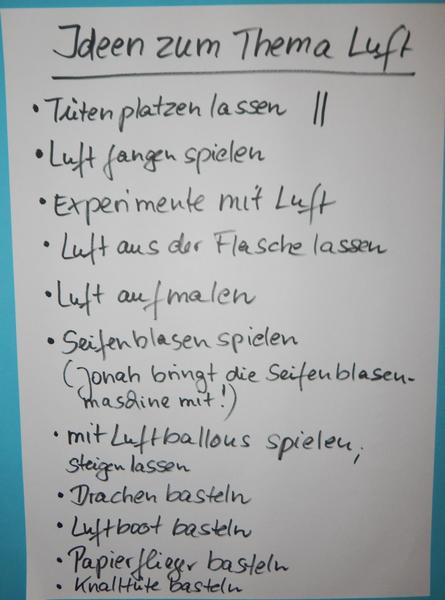 Ideen zum Thema Luft
• Tüten platzen lassen ||
• Luft fangen spielen
• Experimente mit Luft
• Luft aus der Flasche lassen
• Luft aufmalen
• Seifenblasen spielen
(Jonah bringt die Seifenblasen-
maschine mit!)
• mit Luftballons spielen,
steigen lassen
• Drachen basteln
• Luftboot basteln
• Papierflieger basteln
• Knalltüte basteln